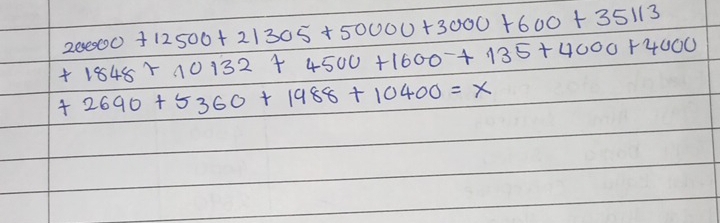 20000 + 12500 + 21305 + 50000 + 3000 + 600 + 35113
+ 1848 + 10132 + 4500 + 1600 + 135 + 4000 + 4000
+ 2690 + 5360 + 1988 + 10400 = x